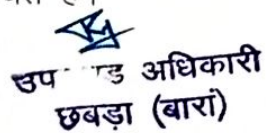 उप ड अधिकारी
छबड़ा (बारां)